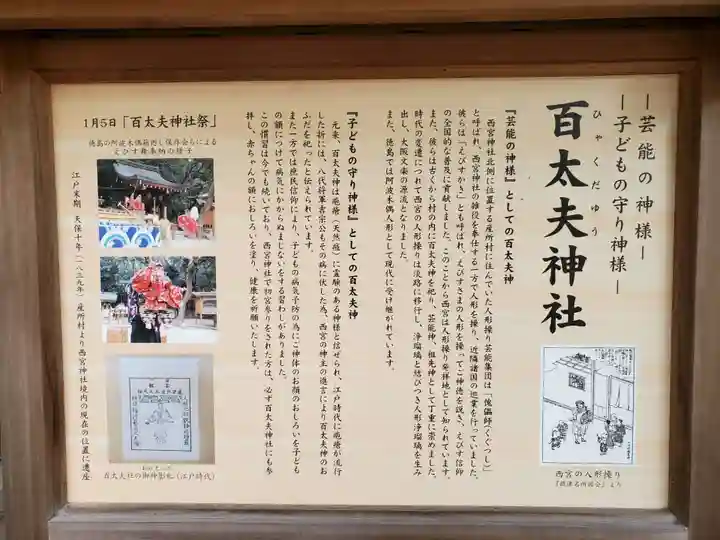 ―芸能の神様―
―子どもの守り神様―
ひゃくだゆう
百太夫神社
西宮の人形操り
『摂津名所図会』より
『芸能の神様』としての百太夫神
西宮神社北側に位置する産所村に住んでいた人形操り芸能集団は「傀儡師(くぐつし)」
と呼ばれ、西宮神社の雑役を奉仕する一方で人形を操り、近隣諸国の巡業を行っていました。
彼らは「えびすかき」とも呼ばれ、えびすさまの人形を操ってご神徳を説き、えびす信仰
の全国的な普及に貢献しました。このことから西宮は人形操り発祥地として知られています。
また、彼らは古くから村の内に百太夫神を祀り、芸能神、祖先神として丁重に崇めました。
時代の変遷につれて西宮の人形操りは淡路に移行し、浄瑠璃と結びつき人形浄瑠璃を生み
出し、大阪文楽の源流となりました。
また、徳島では阿波木偶人形として現代に受け継がれています。
『子どもの守り神様』としての百太夫神
元来、百太夫神は疱瘡(天然痘)に霊験のある神様と信ぜられ、江戸時代に疱瘡が流行
した折には、八代将軍吉宗公もその病に伏した為、西宮の神主の進言により百太夫神のお
ふだを祀ったと伝えられています。
また一方では庶民信仰により、子どもの病気予防の為にご神体のお顔のおしろいを子ども
の額につけて病気にかからぬまじないをする習わしがありました。
この慣習は今でも続いており、西宮神社で初宮参りをされた方は、必ず百太夫神社にも参
拝し、赤ちゃんの額におしろいを塗り、健康を祈願いたします。
1月5日「百太夫神社祭」
徳島の阿波木偶箱廻し保存会らによる
えびす舞奉納の様子
百太夫社の御神影札(江戸時代)
江戸末期 天保十年(一八三九年)産所村より西宮神社境内の現在の位置に遷座